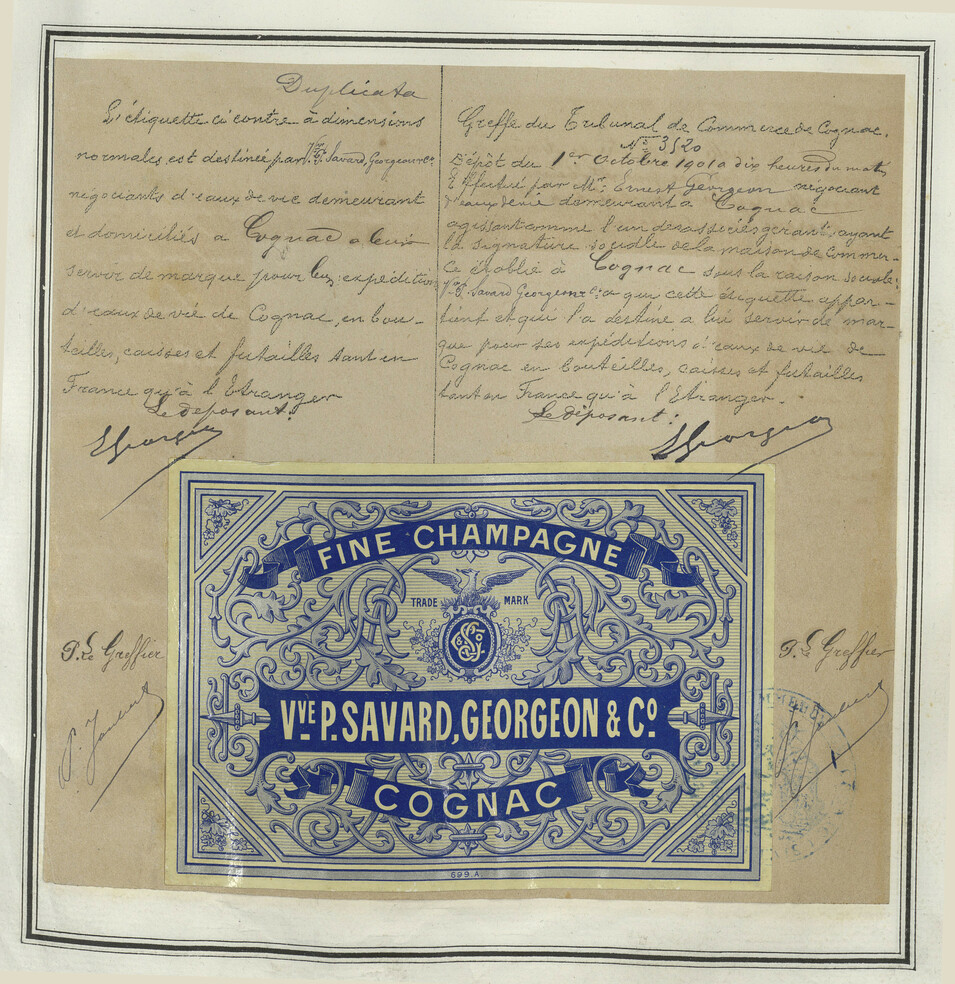 Duplicata
L'étiquette ci contre à dimensions
normales est destinée par Vve P. Savard, Georgeon & Cie
négociants d'eaux de vie demeurant
et domiciliés a Cognac a leur
servir de marque pour les expéditions
d'eaux de vie de Cognac, en bou-
teilles, caisses et futailles tant en
France qu'à l'Etranger
Le déposant:
EGeorgeon
Greffe du Tribunal de Commerce de Cognac.
No 3520
Dépôt du 1er Octobre 1901 a dix heures du matin
Effectué par Mr. Ernest Georgeon négociant
d'eaux de vie demeurant a Cognac
agissant comme l'un des associés gérant, ayant
la signature sociale de la maison de Commer-
ce établie à Cognac sous la raison sociale:
Vve P. Savard Georgeon & Cie a qui cette étiquette appar-
tient et qui l'a destiné a lui servir de mar-
que pour ses expéditions d'eaux de vie de
Cognac en bouteilles, caisses et futailles
tant en France qu'à l'Etranger.
Le déposant:
EGeorgeon
FINE CHAMPAGNE
TRADE MARK
VVE P. SAVARD, GEORGEON & CO.
COGNAC
699 A
P. Le Greffier
P. Le Greffier